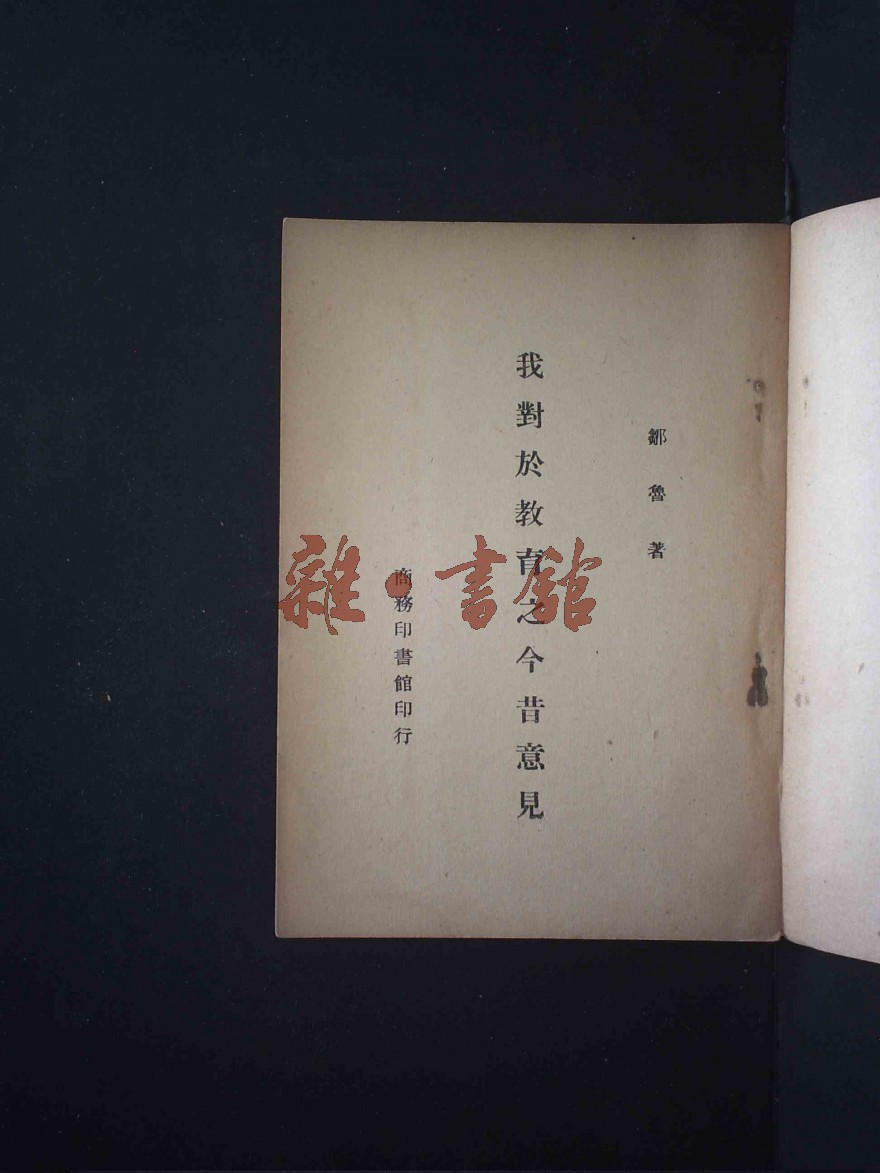 鄒魯著
我對於教育之今昔意見
商務印書館印行
雜·書館